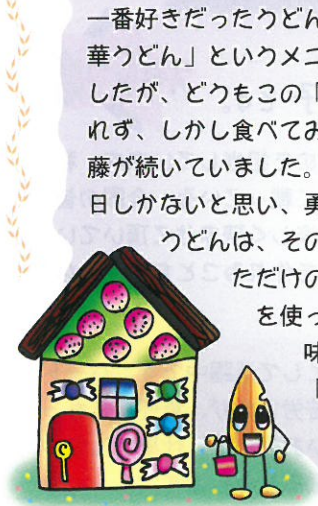 一番好きだったうどん
華うどん」というメニ
したが、どうもこの「
れず、しかし食べてみ
藤が続いていました。
日しかないと思い、勇
うどんは、その
ただけの
を使っ
味
「